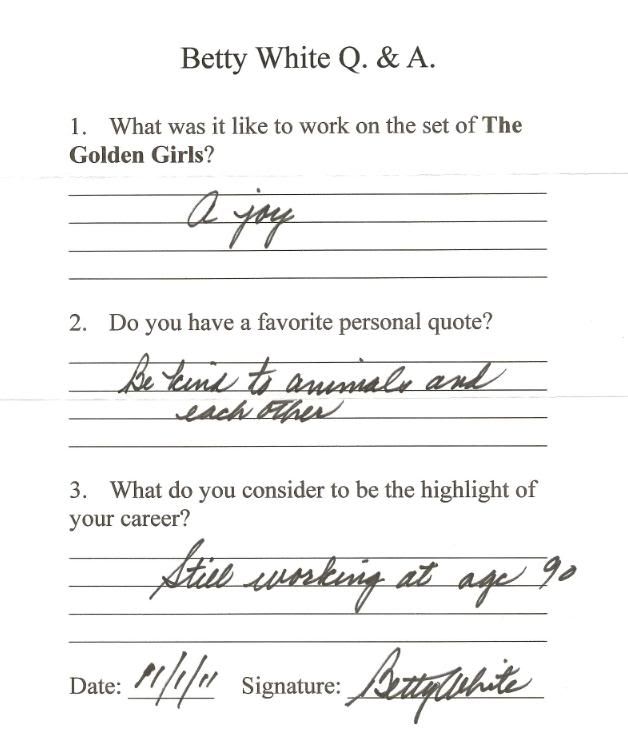 Betty White Q. & A.
1. What was it like to work on the set of The
Golden Girls?
A joy
2. Do you have a favorite personal quote?
Be kind to animals and
each other
3. What do you consider to be the highlight of
your career?
Still working at age 90
Date: 11/1/11 Signature: Betty White